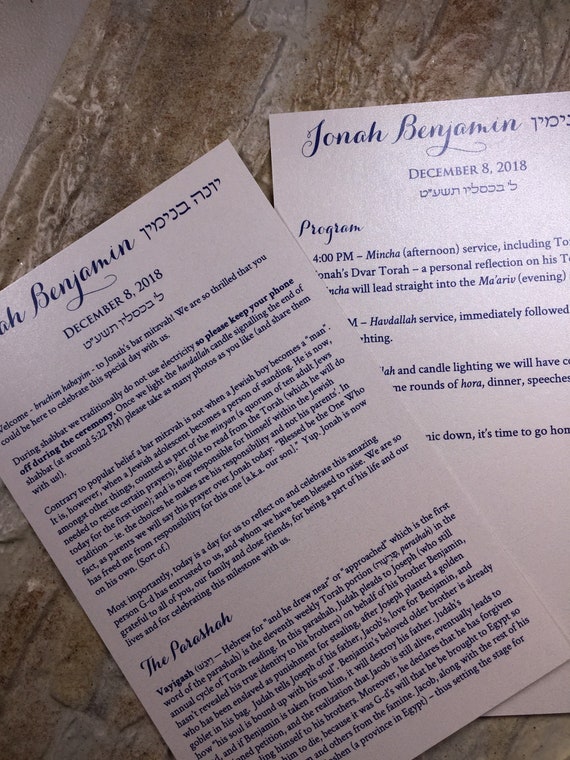 ah Benjamin יונה בנימין
DECEMBER 8, 2018
ל' בכסליו תשע"ט
Welcome - bruchim habayim - to Jonah's bar mitzvah! We are so thrilled that you
could be here to celebrate this special day with us.
During shabbat we traditionally do not use electricity so please keep your phone
off during the ceremony. Once we light the havdallah candle signalling the end of
shabbat (at around 5:22 PM) please take as many photos as you like (and share them
with us!).
Contrary to popular belief a bar mitzvah is not when a Jewish boy becomes a "man".
It is, however, when a Jewish adolescent becomes a person of standing. He is now,
amongst other things, counted as part of the minyan (a quorum of ten adult Jews
needed to recite certain prayers); eligible to read from the Torah (which he will do
today for the first time); and is now responsible for himself within the Jewish
tradition – ie. the choices he makes are his responsibility and not his parents'. In
fact, as parents we will say this prayer over Jonah today: "Blessed be the One Who
has freed me from responsibility for this one [a.k.a. our son]." Yup. Jonah is now
on his own. (Sort of.)
Most importantly, today is a day for us to reflect on and celebrate this amazing
person G-d has entrusted to us, and whom we have been blessed to raise. We are so
grateful to all of you, our family and close friends, for being a part of his life and our
lives and for celebrating this milestone with us.
The Parashah
Vayigash (ויגש) — Hebrew for "and he drew near" or "approached" which is the first
word of the parashah) is the eleventh weekly Torah portion (פָּרָשָׁה, parashah) in the
annual cycle of Torah reading. In this parashah, Judah pleads to Joseph (who still
hasn't revealed his true identity to his brothers) on behalf of his brother Benjamin,
who has been enslaved as punishment for stealing, after Joseph planted a golden
goblet in his bag. Judah tells Joseph of his father, Jacob's, love for Benjamin, and
how "his soul is bound up with his soul". Benjamin's beloved older brother is already
d, and if Benjamin is taken from him, it will destroy his father. Judah's
ioned petition, and the realization that Jacob is still alive, eventually leads to
ling himself to his brothers. Moreover, he declares that he has forgiven
him to die, because it was G-d's will that he be brought to Egypt so
m and others from the famine. Jacob, along with the rest of his
shen (a province in Egypt) – thus setting the stage for
Jonah Benjamin יונה בנימין
DECEMBER 8, 2018
ל' בכסליו תשע"ט
Program
4:00 PM – Mincha (afternoon) service, including To
onah's Dvar Torah – a personal reflection on his T
ncha will lead straight into the Ma'ariv (evening)
M – Havdallah service, immediately followed
hting.
lah and candle lighting we will have co
me rounds of hora, dinner, speeches
nic down, it's time to go hom